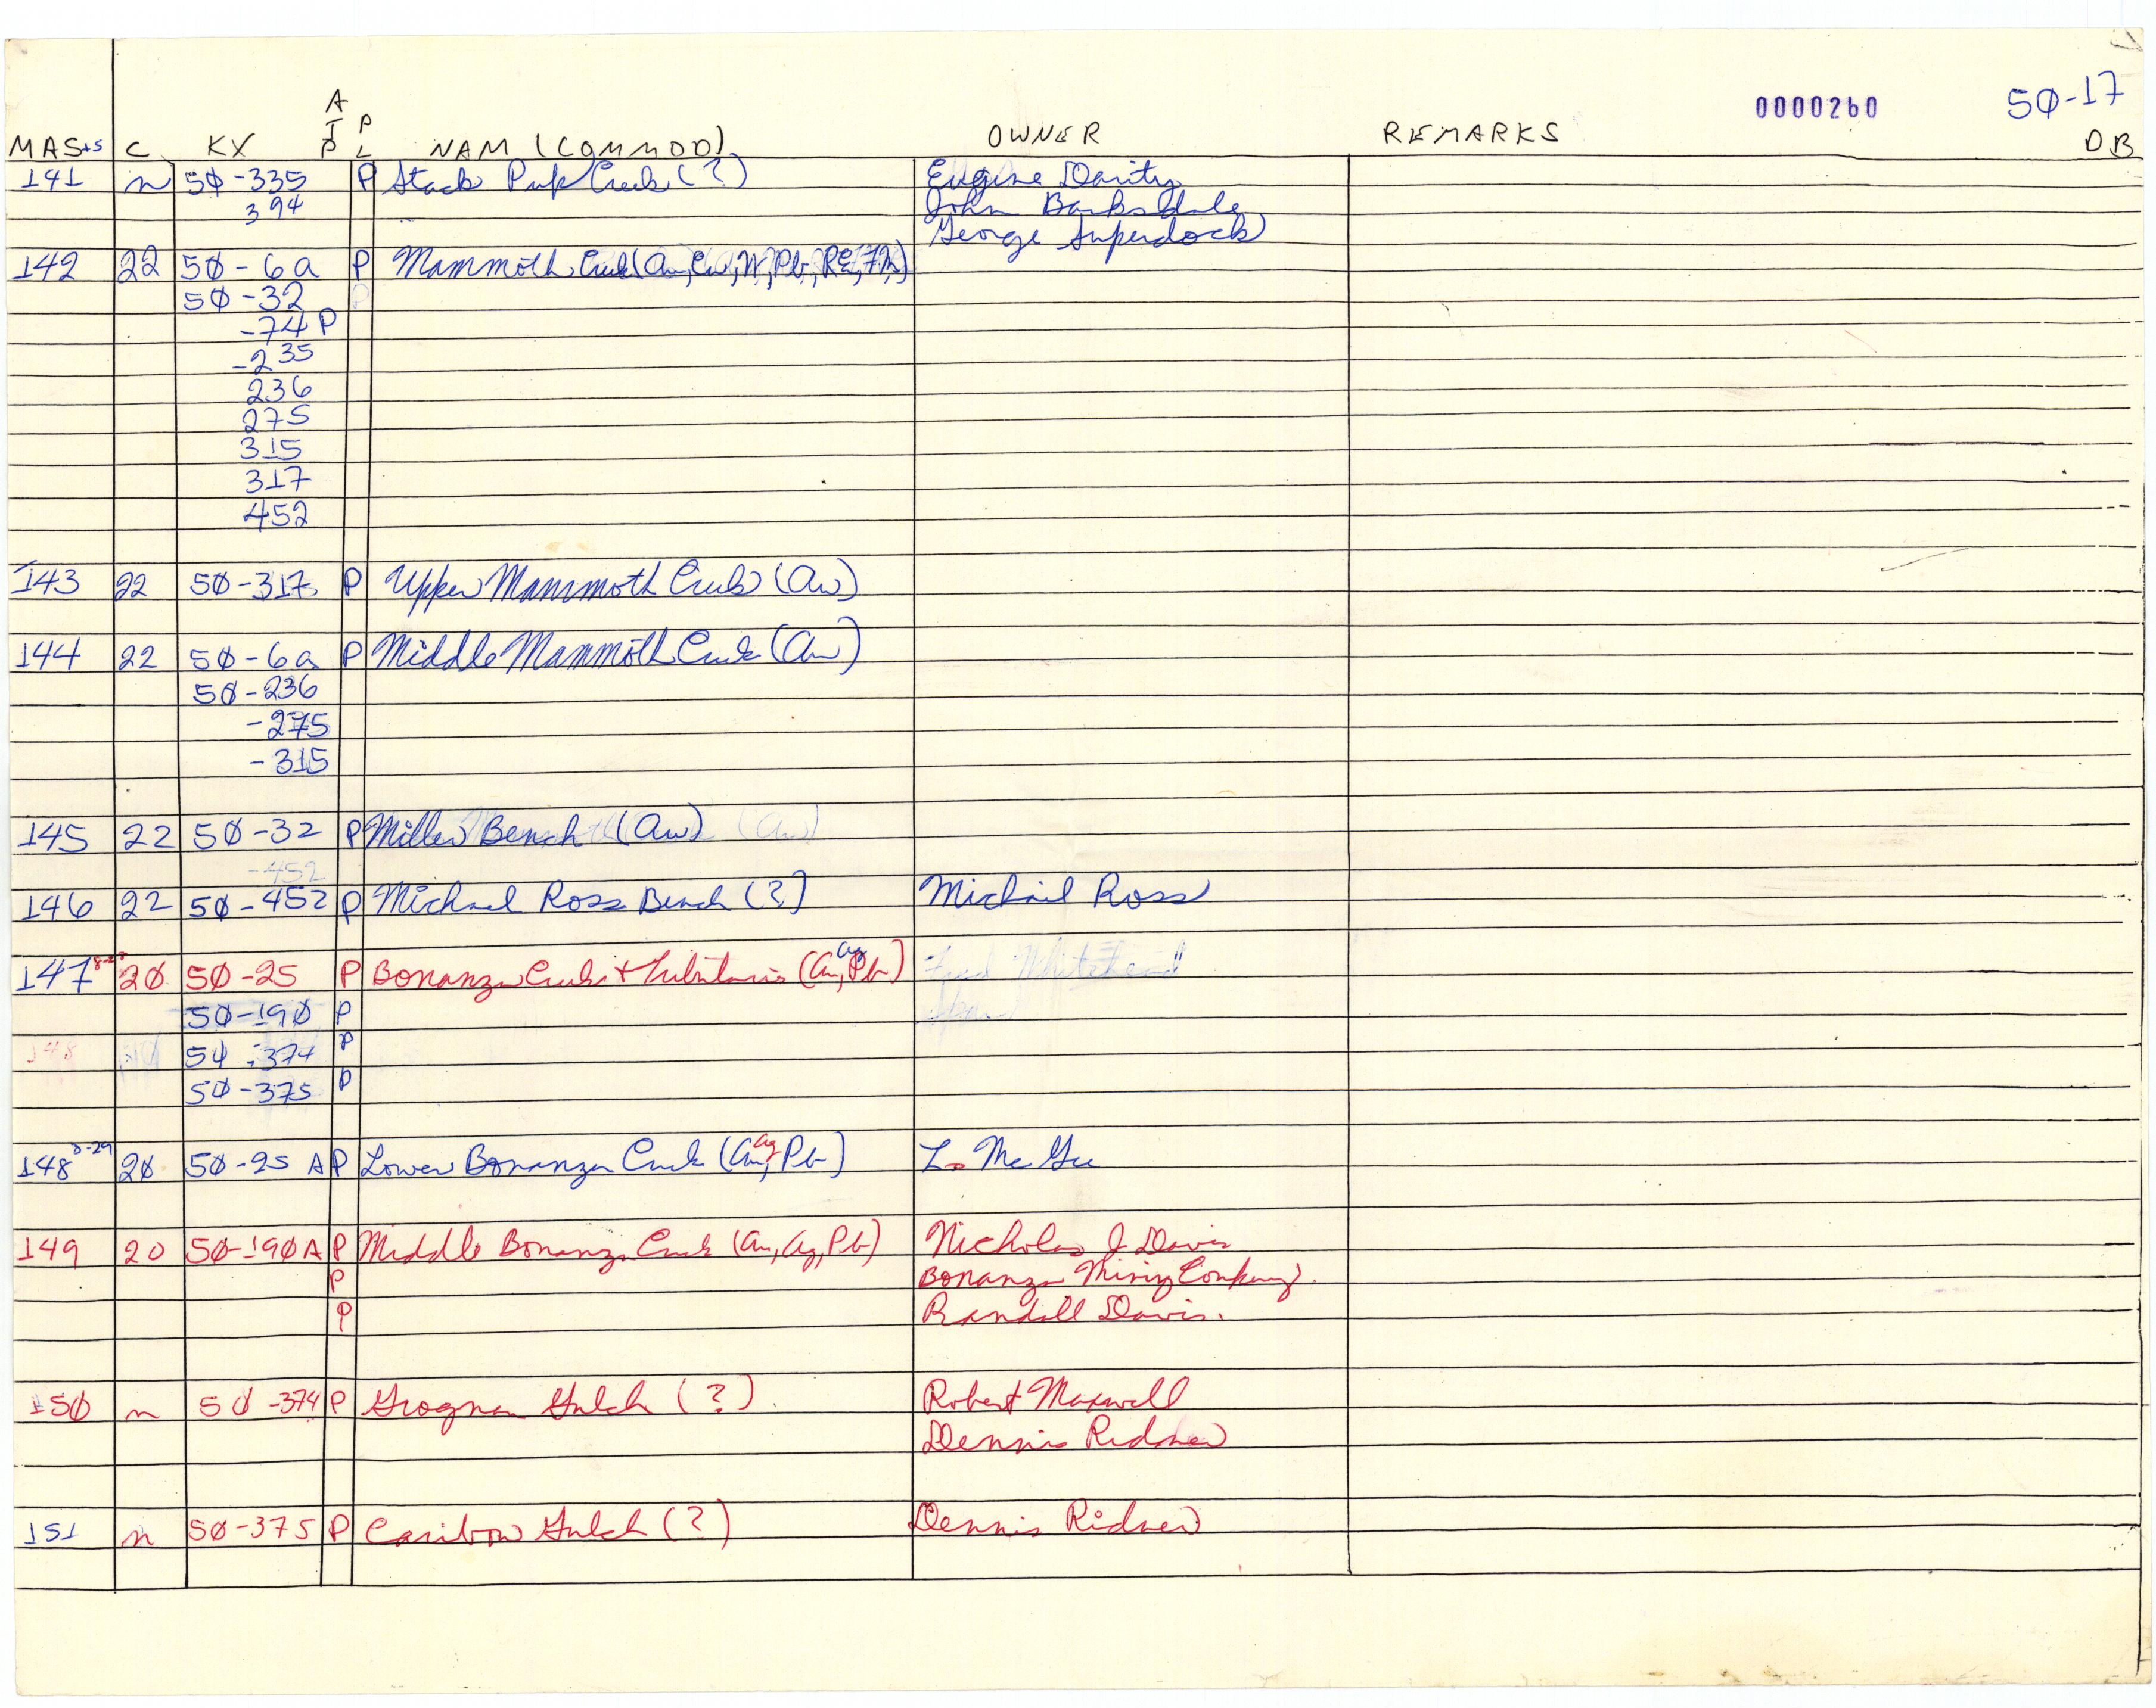 0000260 50-17
A T P
P L
MAS+s C KX NAM (COMMOD) OWNER REMARKS DB
141 n 50-335 P Stack Pup Creek (?) Eugene Darity
394 John Barksdale
George Superdock
142 22 50-6a P Mammoth Creek (Au, Cu, W, Pb, RE, Th)
50-32 P
-74 P
-235
236
275
315
317
452
143 22 50-317 P Upper Mammoth Creek (Au)
144 22 50-6a P Middle Mammoth Creek (Au)
50-236
-275
-315
145 22 50-32 P Miller Bench (Au) (Au)
-452
146 22 50-452 P Michael Ross Bench (?) Michail Ross
147 20 50-25 P Bonanza Creek + Tributaries (Au, Ag, Pb) Fred Whitehead
50-190 P
148 50-374 P
50-375 P
148 8-29 20 50-25 A P Lower Bonanza Creek (Au, Ag, Pb) L. McGee
149 20 50-190 A P Middle Bonanza Creek (Au, Ag, Pb) Nicholas J Davis
P Bonanza Mining Company
P Randall Davis.
150 n 50-374 P Grogner Gulch (?) Robert Maxwell
Dennis Ridner
151 n 50-375 P Caribou Gulch (?) Dennis Ridner